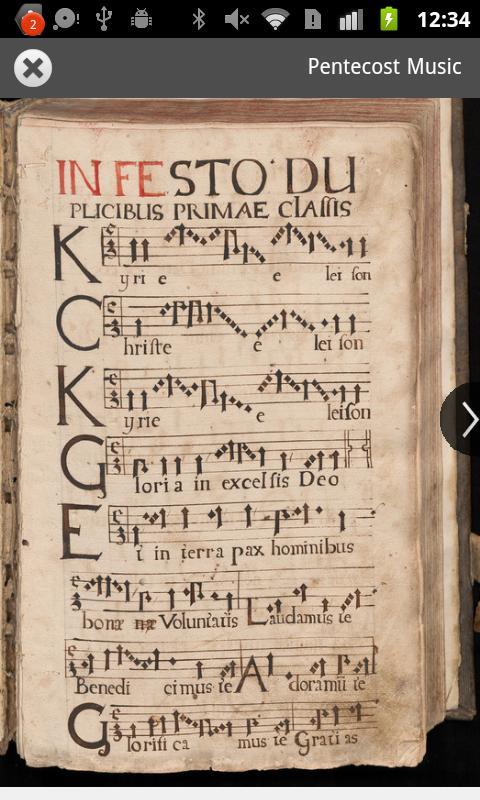 2
12:34
Pentecost Music
IN FESTO DU
PLICIBUS PRIMAE Classis
K yri e e lei son
C hriste e lei son
K yrie e leison
G lori a in excelsis Deo
E t in terra pax hominibus
bonæ næ Voluntatis Laudamus te
Benedi cimus te A doramus te
G lorifi ca mus te Grati as